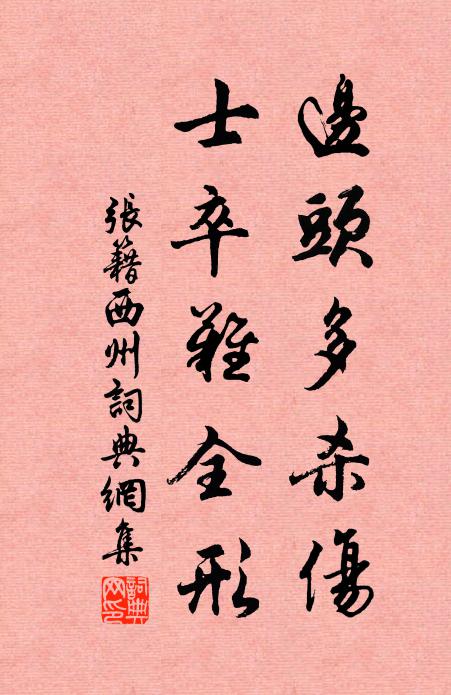 邊頭多杀傷
士卒難全形
張籍西州詞典網集
詞典网印